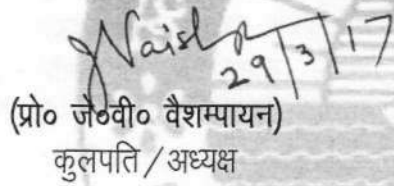 29/3/17
(प्रो० जे०वी० वैशम्पायन)
कुलपति / अध्यक्ष